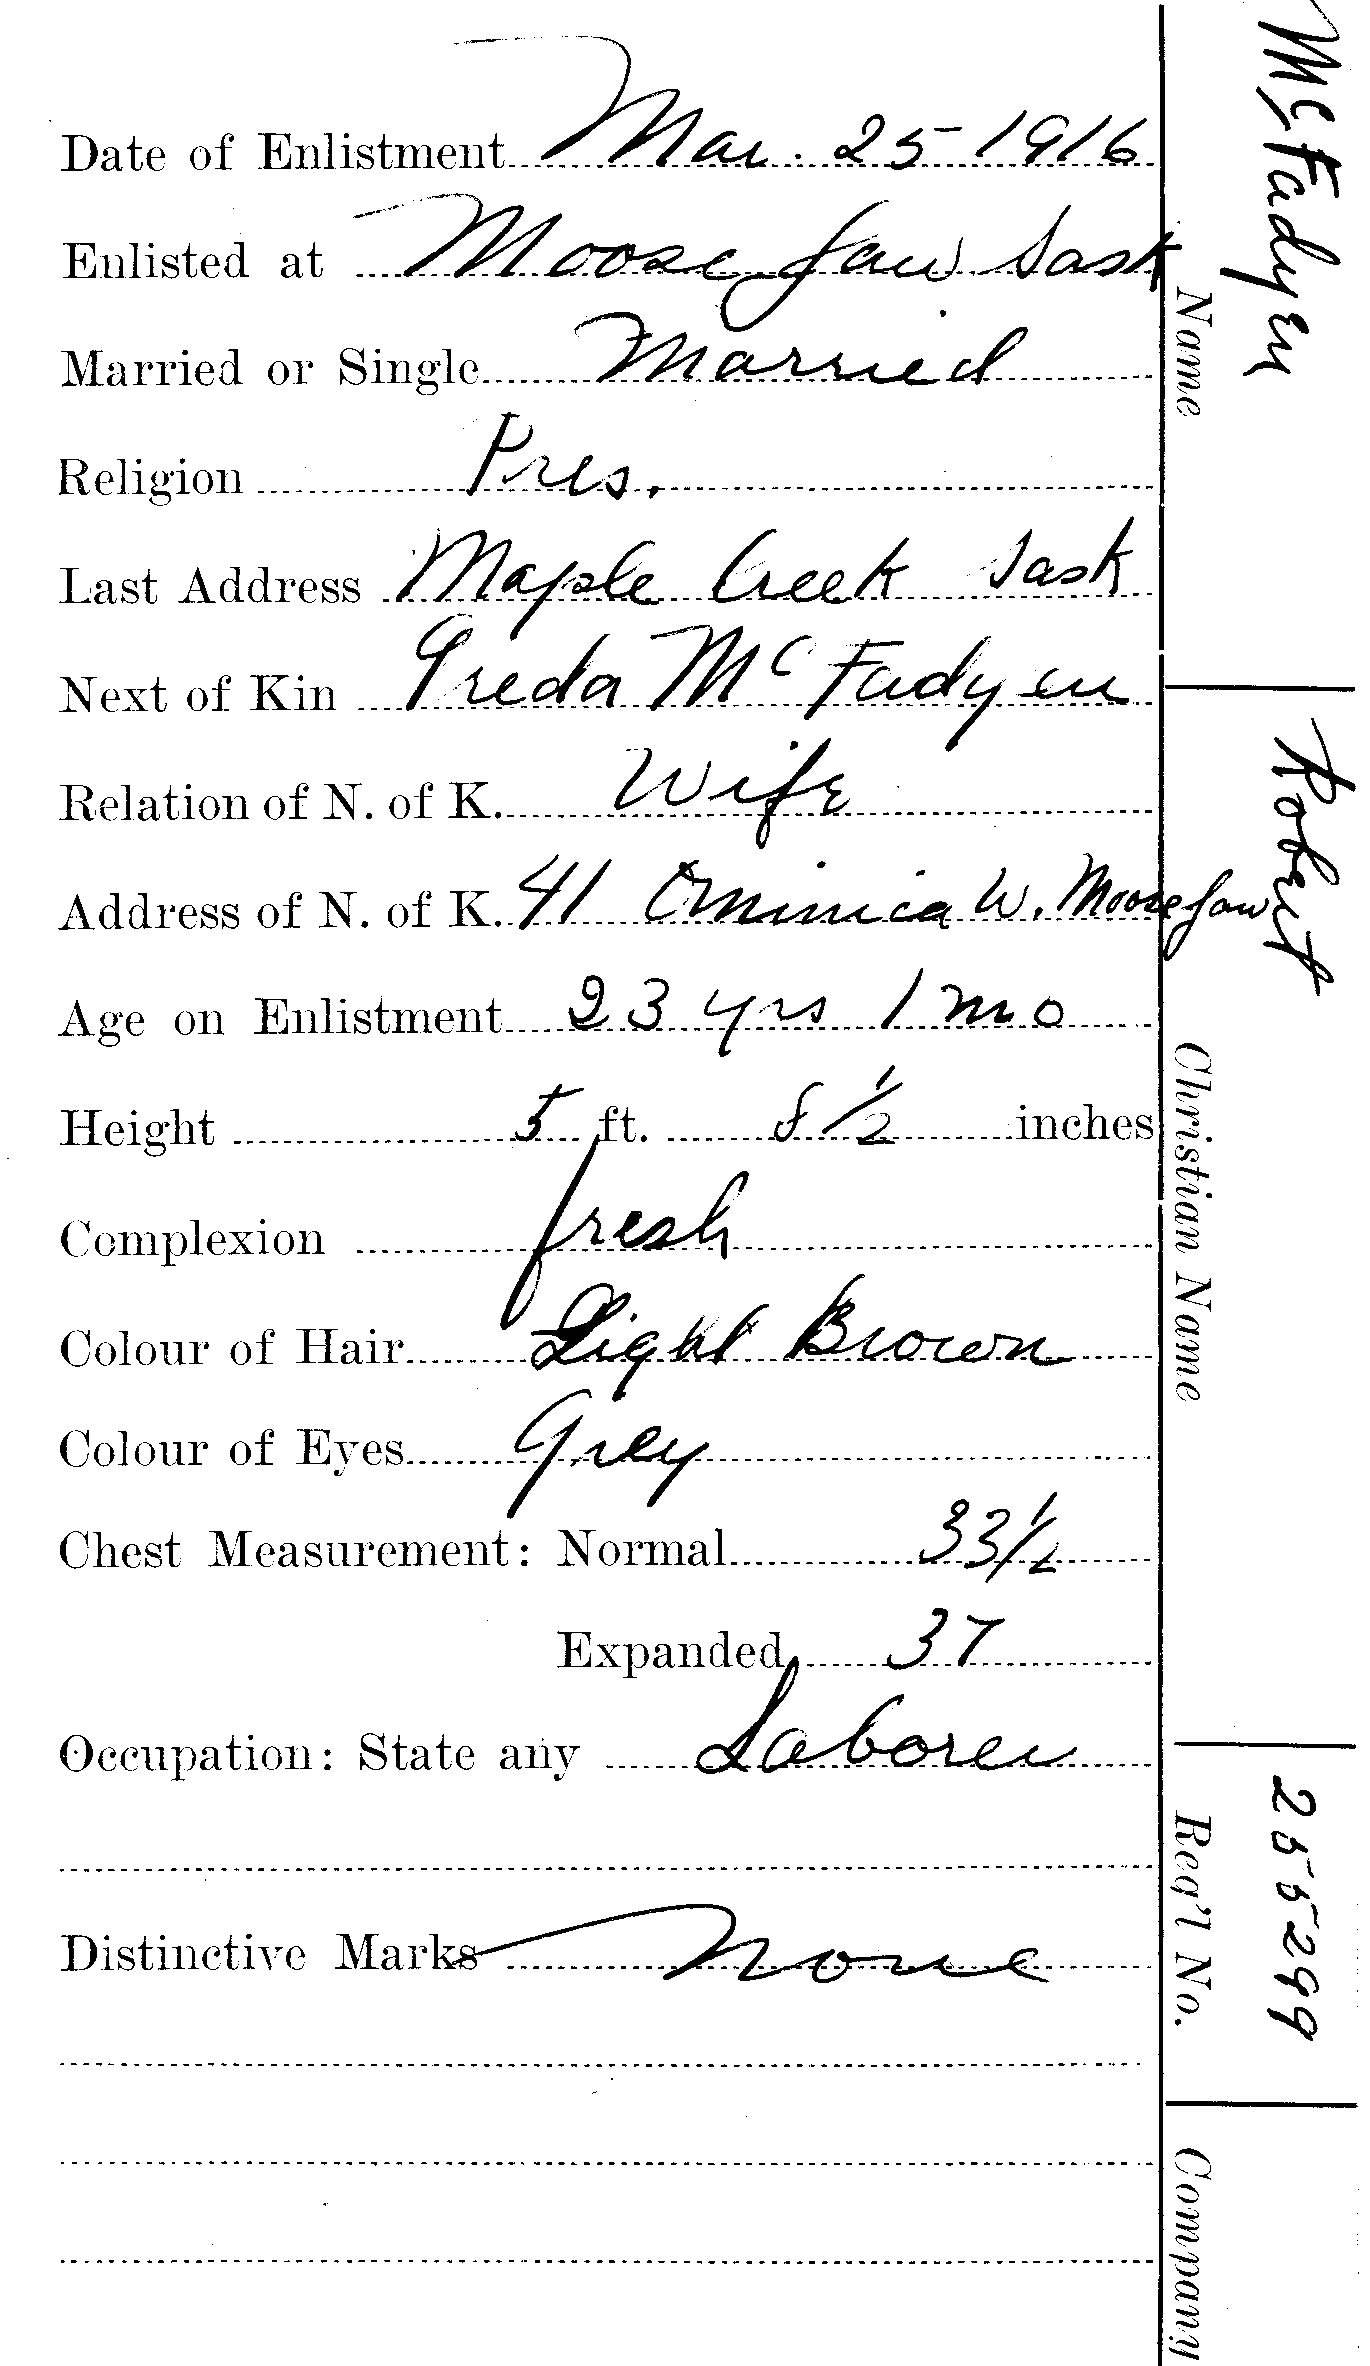 Date of Enlistment Mar. 25 1916
Enlisted at Moose Jaw Sask
Married or Single Married
Religion Pres.
Last Address Maple Creek Sask
Next of Kin Freda McFadyen
Relation of N. of K. Wife
Address of N. of K. 41 Ominica W. Moose Jaw
Age on Enlistment 23 yrs 1 mo
Height 5 ft. 8 1/2 inches
Complexion fresh
Colour of Hair Light Brown
Colour of Eyes Grey
Chest Measurement: Normal 33 1/2
Expanded 37
Occupation: State any Laborer
Distinctive Marks None
McFadyen
Name
Robert
Christian Name
255299
Reg'l No.
Company